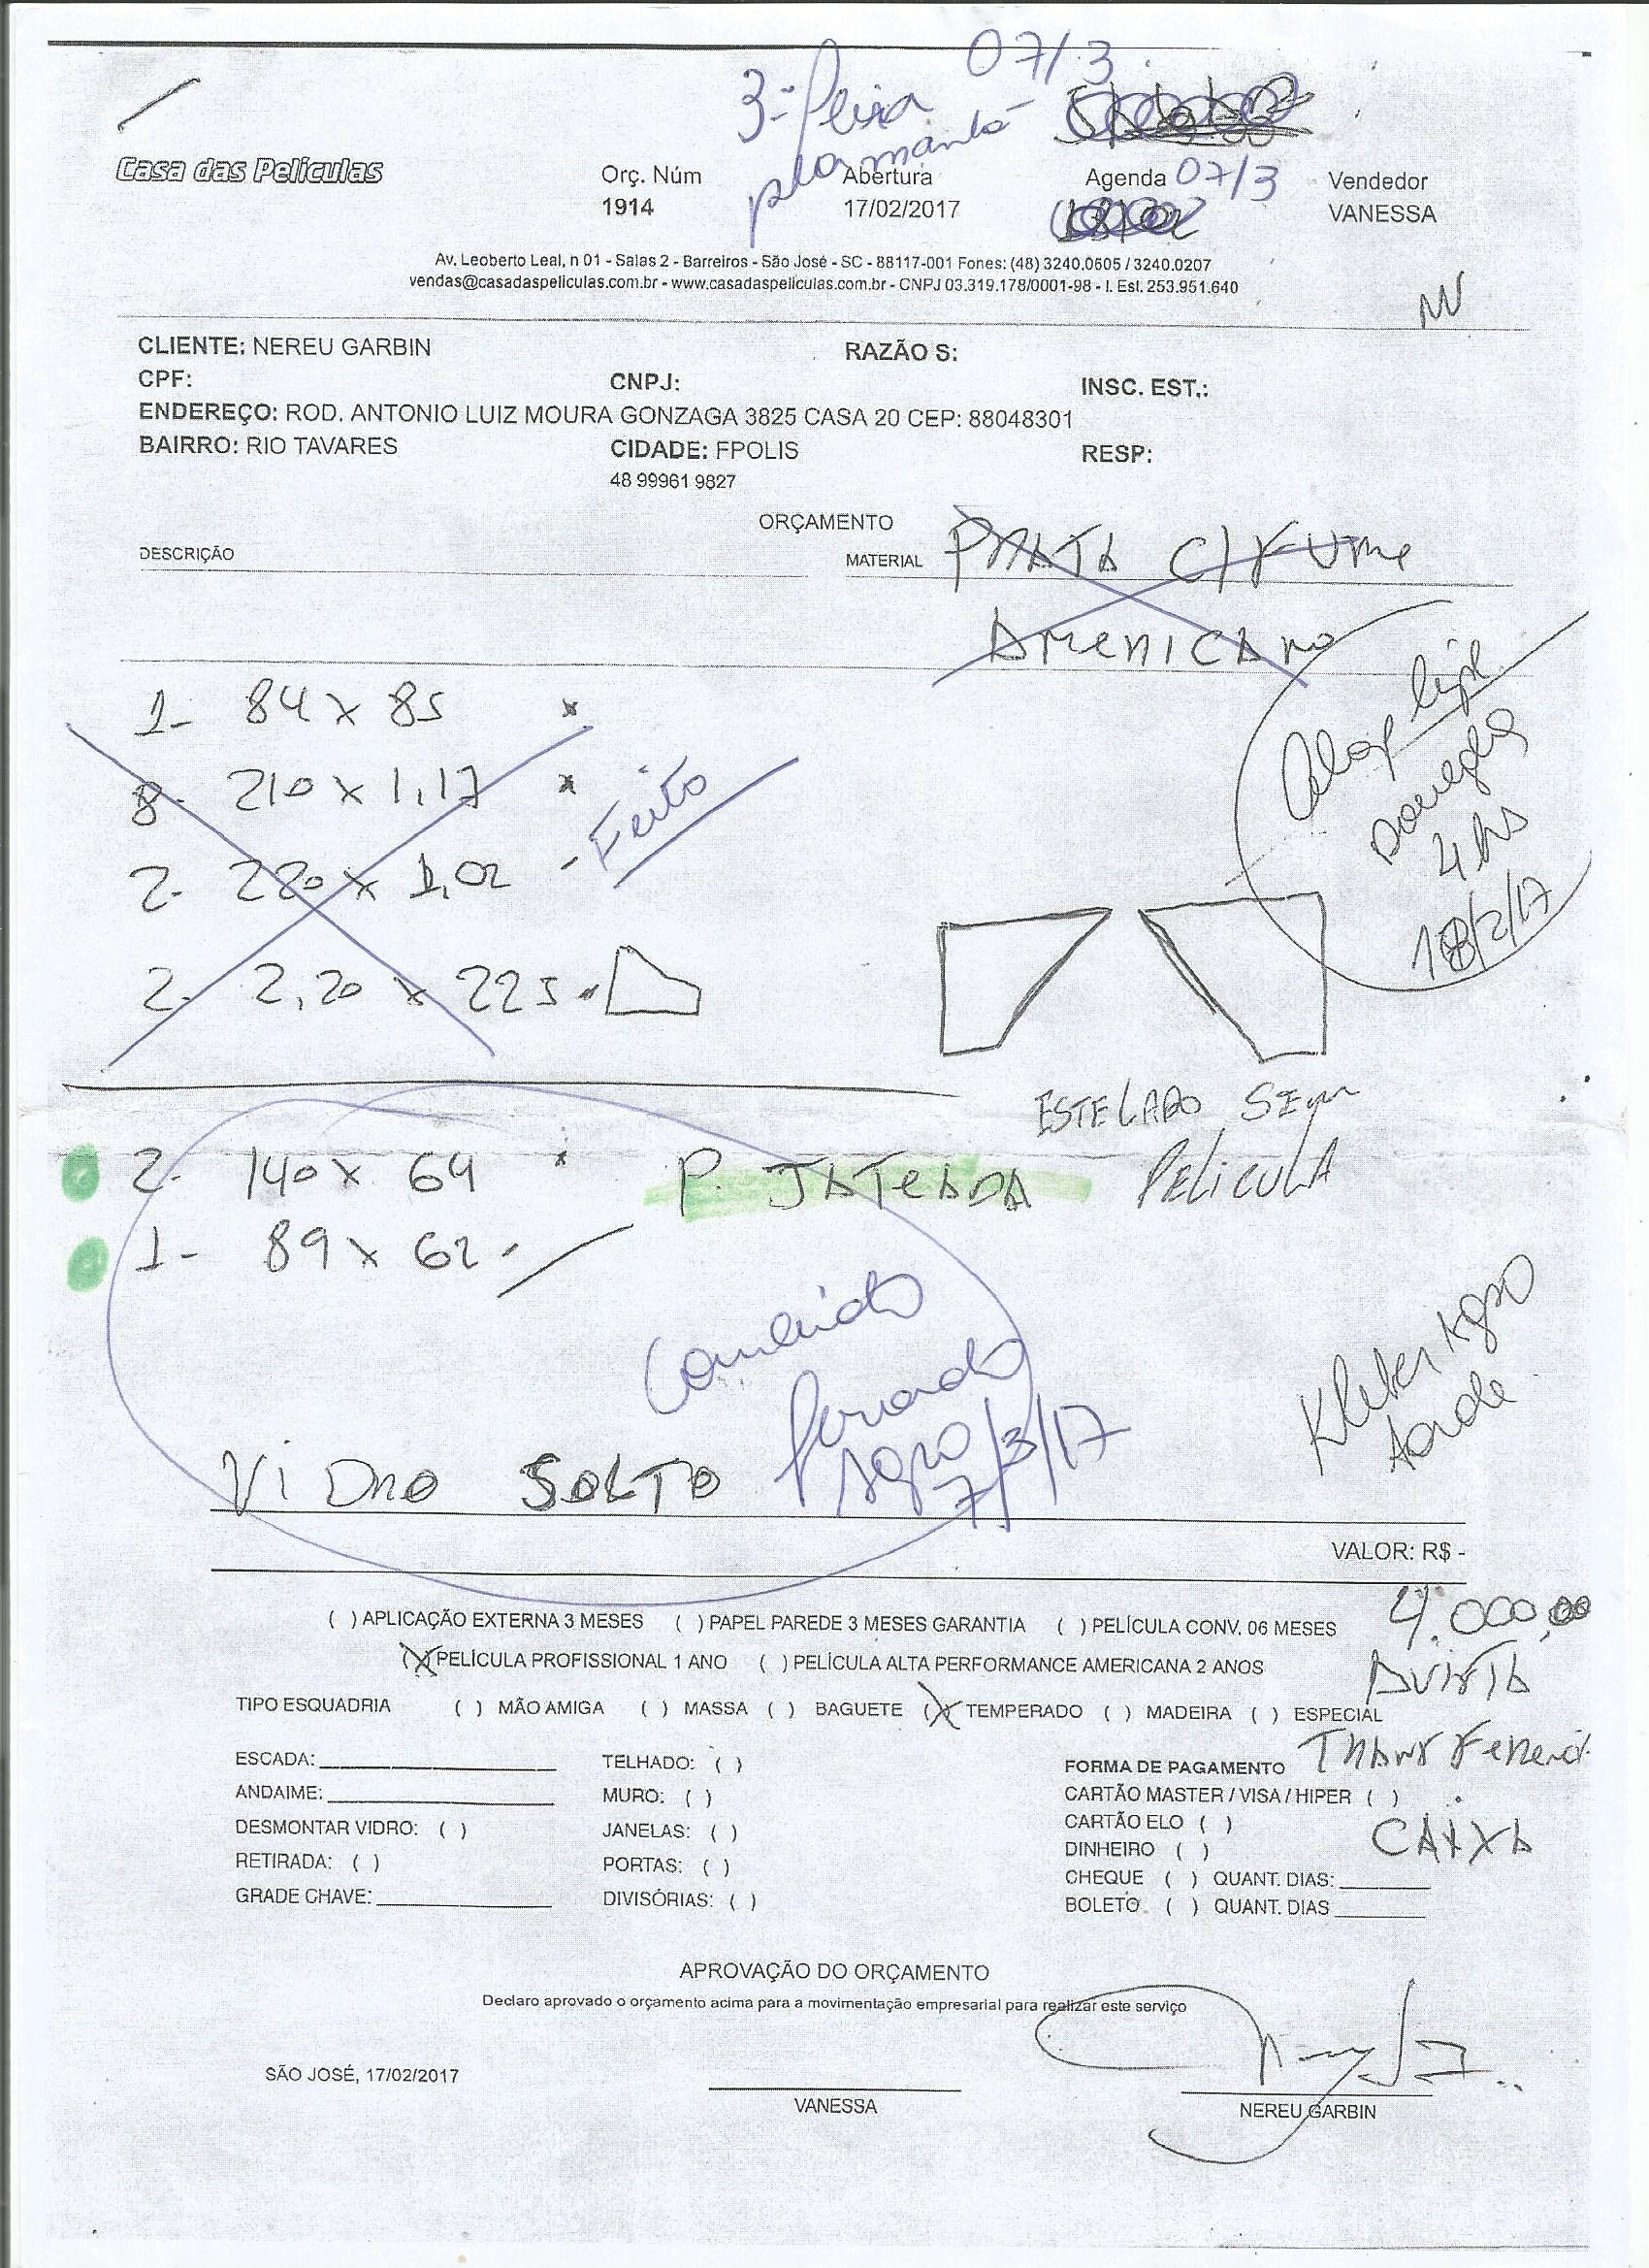 07/3
3ª feira
p/ amanhã
Casa das Películas
Orç. Núm
1914
Abertura
17/02/2017
Agenda 07/3
Vendedor
VANESSA
Av. Leoberto Leal, n 01 - Salas 2 - Barreiros - São José - SC - 88117-001 Fones: (48) 3240.0605 / 3240.0207
vendas@casadaspeliculas.com.br - www.casadaspeliculas.com.br - CNPJ 03.319.178/0001-98 - I. Est. 253.951.640
CLIENTE: NEREU GARBIN
RAZÃO S:
CPF:
CNPJ:
INSC. EST.:
ENDEREÇO: ROD. ANTONIO LUIZ MOURA GONZAGA 3825 CASA 20 CEP: 88048301
BAIRRO: RIO TAVARES
CIDADE: FPOLIS
RESP:
48 99961 9827
ORÇAMENTO
DESCRIÇÃO
MATERIAL PRATA C/ FUME
AMERICANO
1- 84 x 85
8- 210 x 1,17
Feito
2- 220 x 1,02
2- 2,20 x 225
4 hs
18/2/17
ESTELADO SEM
PELICULA
2- 140 x 64 P. JATEADA
1- 89 x 62
Fernando
7/3/17
Kleber
VIDRO SOLTO
VALOR: R$ -
4.000,00
( ) APLICAÇÃO EXTERNA 3 MESES ( ) PAPEL PAREDE 3 MESES GARANTIA ( ) PELÍCULA CONV. 06 MESES
(X) PELÍCULA PROFISSIONAL 1 ANO ( ) PELÍCULA ALTA PERFORMANCE AMERICANA 2 ANOS
AVISTA
TIPO ESQUADRIA ( ) MÃO AMIGA ( ) MASSA ( ) BAGUETE (X) TEMPERADO ( ) MADEIRA ( ) ESPECIAL
ESCADA:
ANDAIME:
DESMONTAR VIDRO: ( )
RETIRADA: ( )
GRADE CHAVE:
TELHADO: ( )
MURO: ( )
JANELAS: ( )
PORTAS: ( )
DIVISÓRIAS: ( )
FORMA DE PAGAMENTO
CARTÃO MASTER / VISA / HIPER ( )
CARTÃO ELO ( )
CAIXA
DINHEIRO ( )
CHEQUE ( ) QUANT. DIAS:
BOLETO ( ) QUANT. DIAS
APROVAÇÃO DO ORÇAMENTO
Declaro aprovado o orçamento acima para a movimentação empresarial para realizar este serviço
SÃO JOSÉ, 17/02/2017
VANESSA
NEREU GARBIN